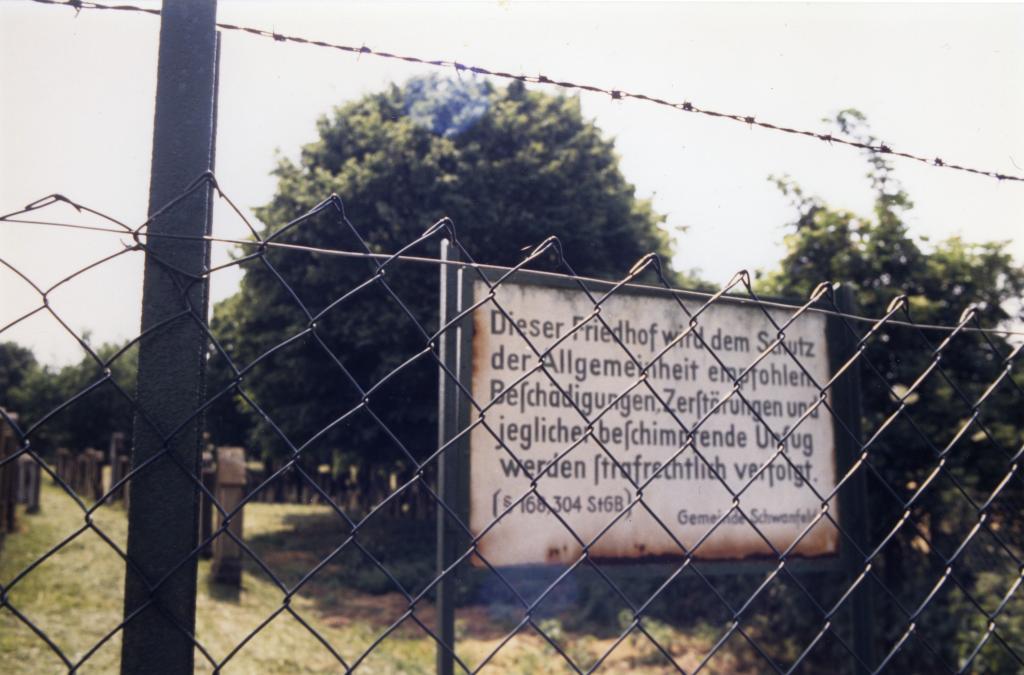 Dieser Friedhof wird dem Schutz
der Allgemeinheit empfohlen.
Beſchädigungen, Zerſtörungen und
jeglicher beſchimpfende Unfug
werden ſtrafrechtlich verfolgt.
(§ 168, 304 StGB)
Gemeinde Schwanfeld